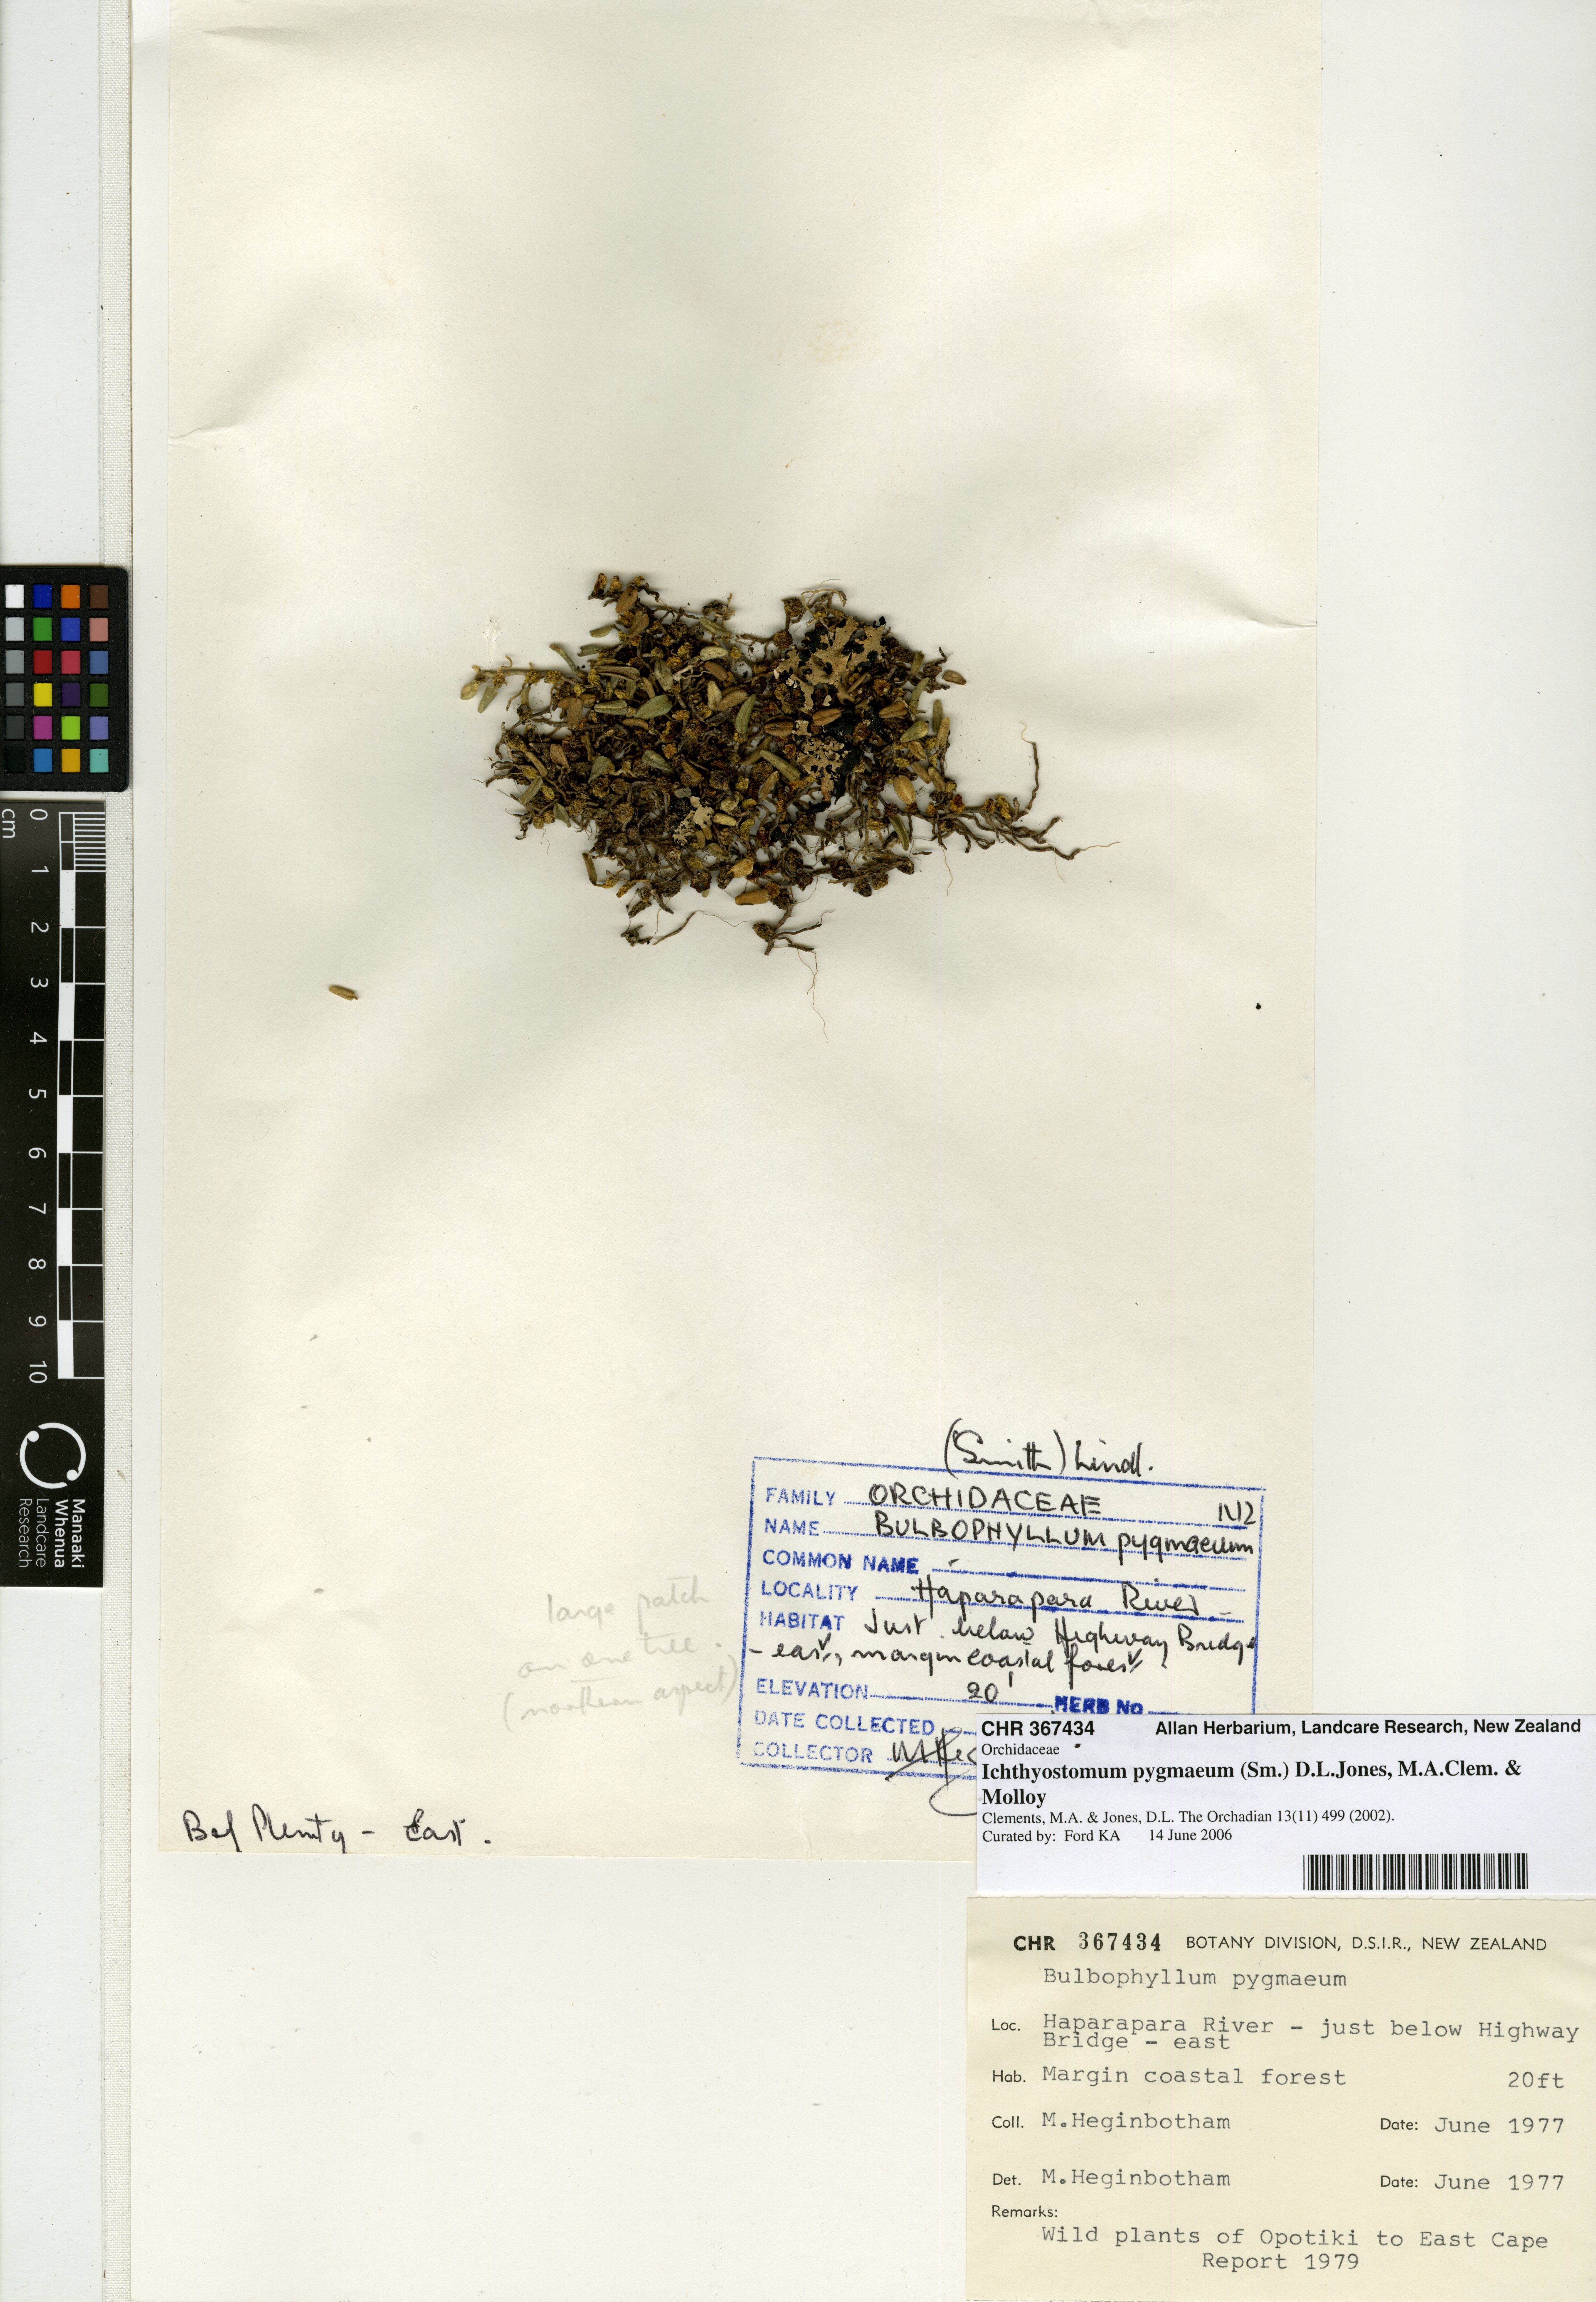 cm
0
1
2
3
4
5
6
7
8
9
10
Manaaki
Whenua
Landcare
Research
large patch
on one tree.
(northern aspect)
(Smith) Lindl.
FAMILY ORCHIDACEAE
NAME BULBOPHYLLUM pygmaeum
COMMON NAME -
LOCALITY Haparapara River -
HABITAT Just below Highway Bridge
- east, margin coastal forest.
ELEVATION 20' HERB NO
DATE COLLECTED
COLLECTOR
B of Plenty - East.
CHR 367434 Allan Herbarium, Landcare Research, New Zealand
Orchidaceae
Ichthyostomum pygmaeum (Sm.) D.L.Jones, M.A.Clem. &
Molloy
Clements, M.A. & Jones, D.L. The Orchadian 13(11) 499 (2002).
Curated by: Ford KA 14 June 2006
CHR 367434 BOTANY DIVISION, D.S.I.R., NEW ZEALAND
Bulbophyllum pygmaeum
Loc. Haparapara River - just below Highway
Bridge - east
Hab. Margin coastal forest 20ft
Coll. M.Heginbotham Date: June 1977
Det. M.Heginbotham Date: June 1977
Remarks:
Wild plants of Opotiki to East Cape
Report 1979